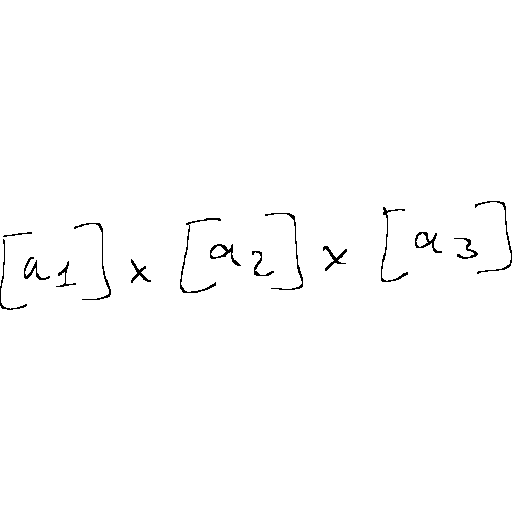 [a1] × [a2] × [a3]